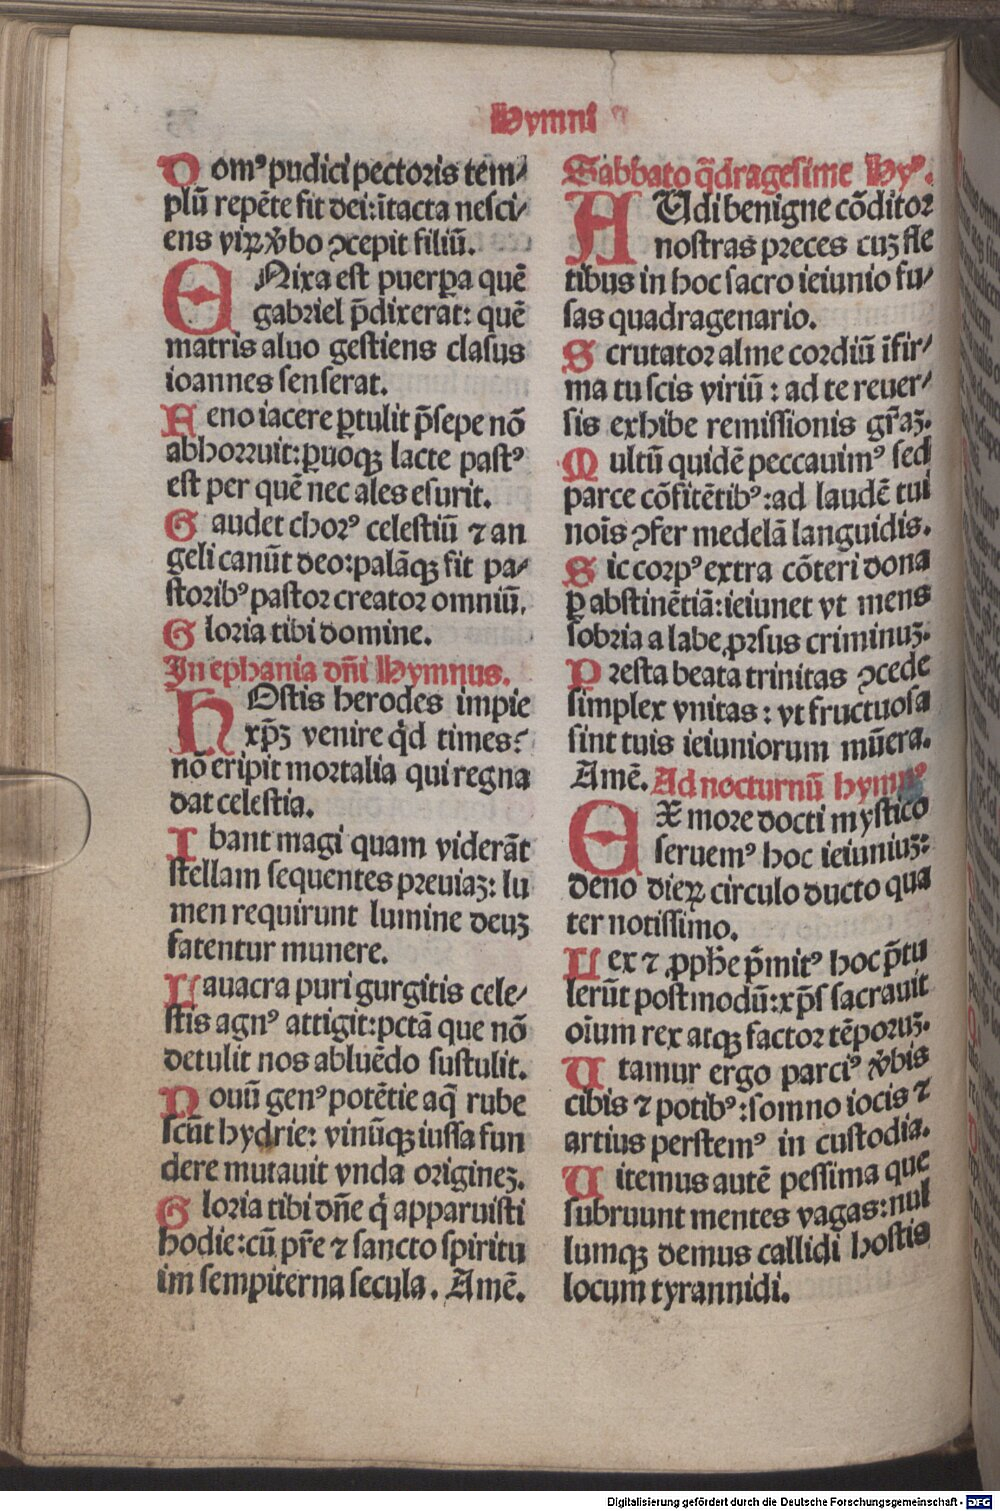 Hymni
Domꝰ pudici pectoris tem⸗
plū repēte fit dei: ītacta nesci⸗
ens viꝝ v̓bo ꝯcepit filiū.
ENixa est puerꝑa quē
gabriel p̄dixerat: quē
matris aluo gestiens clasus
ioannes senserat.
Feno iacere ꝑtulit p̄sepe nō
abhorruit: ꝑuoqꝫ lacte pastꝰ
est per quē nec ales esurit.
Gaudet chorꝰ celestiū ⁊ an
geli canūt deo: palāqꝫ fit pa⸗
storibꝰ pastor creator omniū.
Gloria tibi domine.
In ephania dn̄i Hymnus.
hOstis herodes impie
xp̄ꝫ venire qͥd times:
nō eripit mortalia qui regna
dat celestia.
Ibant magi quam viderāt
stellam sequentes preuiaꝫ: lu
men requirunt lumine deuꝫ
fatentur munere.
Lauacra puri gurgitis cele⸗
stis agnꝰ attigit: pctā que nō
detulit nos abluēdo sustulit.
Nouū genꝰ potētie aq̄ rube
scūt hydrie: vinūqꝫ iussa fun
dere mutauit vnda origineꝫ.
Gloria tibi dn̄e qͥ apparuisti
hodie: cū pr̄e ⁊ sancto spiritu
im sempiterna secula. Amē.
Sabbato q̄dragesime Hyꝰ.
AUdi benigne cōditor
nostras preces cuꝫ fle
tibus in hoc sacro ieiunio fu⸗
sas quadragenario.
Scrutator alme cordiū īfir⸗
ma tu scis viriū: ad te reuer⸗
sis exhibe remissionis gr̄aꝫ.
Multū quidē peccauimꝰ sed
parce cōfitētibꝰ: ad laudē tui
noīs ꝯfer medelā languidis.
Sic corpꝰ extra cōteri dona
ꝑ abstinētiā: ieiunet vt mens
sobria a labe ꝓrsus criminuꝫ.
Presta beata trinitas ꝯcede
simplex vnitas: vt fructuosa
sint tuis ieiuniorum mūera.
Amē. Ad nocturnū hymnꝰ
EX more docti mystico
seruemꝰ hoc ieiuniuꝫ:
deno dieꝝ circulo ducto qua
ter notissimo.
Lex ⁊ ꝓph̄e p̄mitꝰ hoc p̄tu
lerūt postmodū: xp̄s sacrauit
oīum rex atqꝫ factor tēporuꝫ.
Utamur ergo parciꝰ v̓bis
cibis ⁊ potibꝰ: somno iocis ⁊
artius perstemꝰ in custodia.
Uitemus autē pessima que
subruunt mentes vagas: nul
lumqꝫ demus callidi hostis
locum tyrannidi.
Digitalisierung gefördert durch die Deutsche Forschungsgemeinschaft - DFG